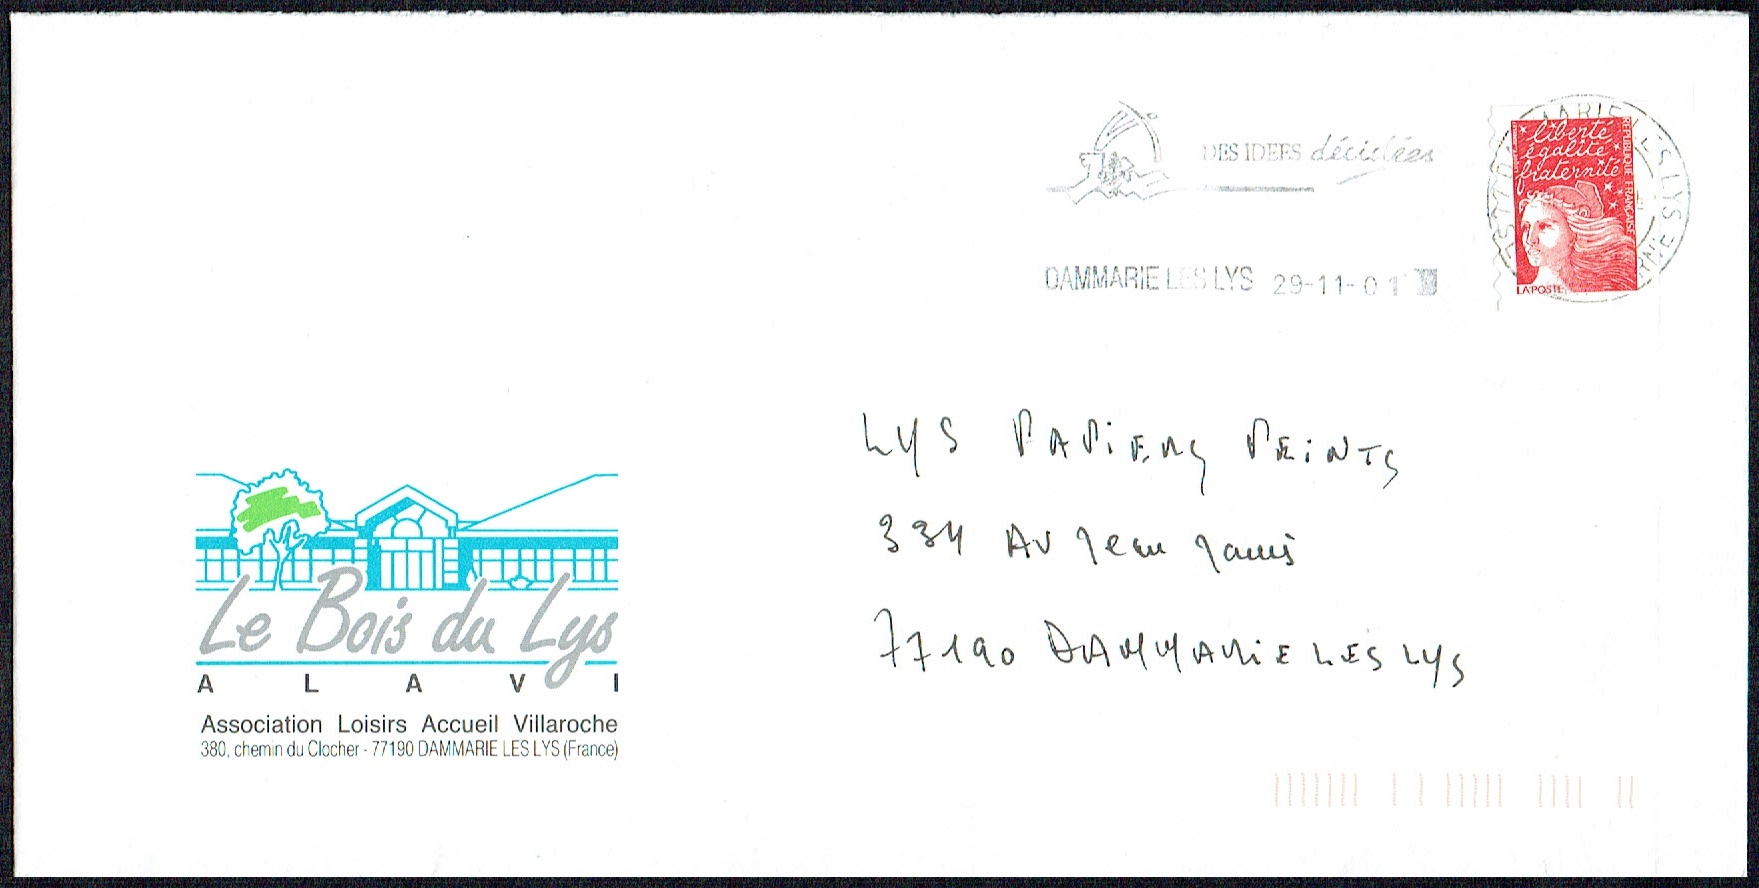 DES IDEES décidées
DAMMARIE LES LYS 29-11-01
liberté
égalité
fraternité
REPUBLIQUE FRANÇAISE
LA POSTE
LYS PAPIERS PEINTS
334 AV Jean Jaurès
77190 DAMMARIE LES LYS
Le Bois du Lys
A L A V I
Association Loisirs Accueil Villaroche
380, chemin du Clocher - 77190 DAMMARIE LES LYS (France)